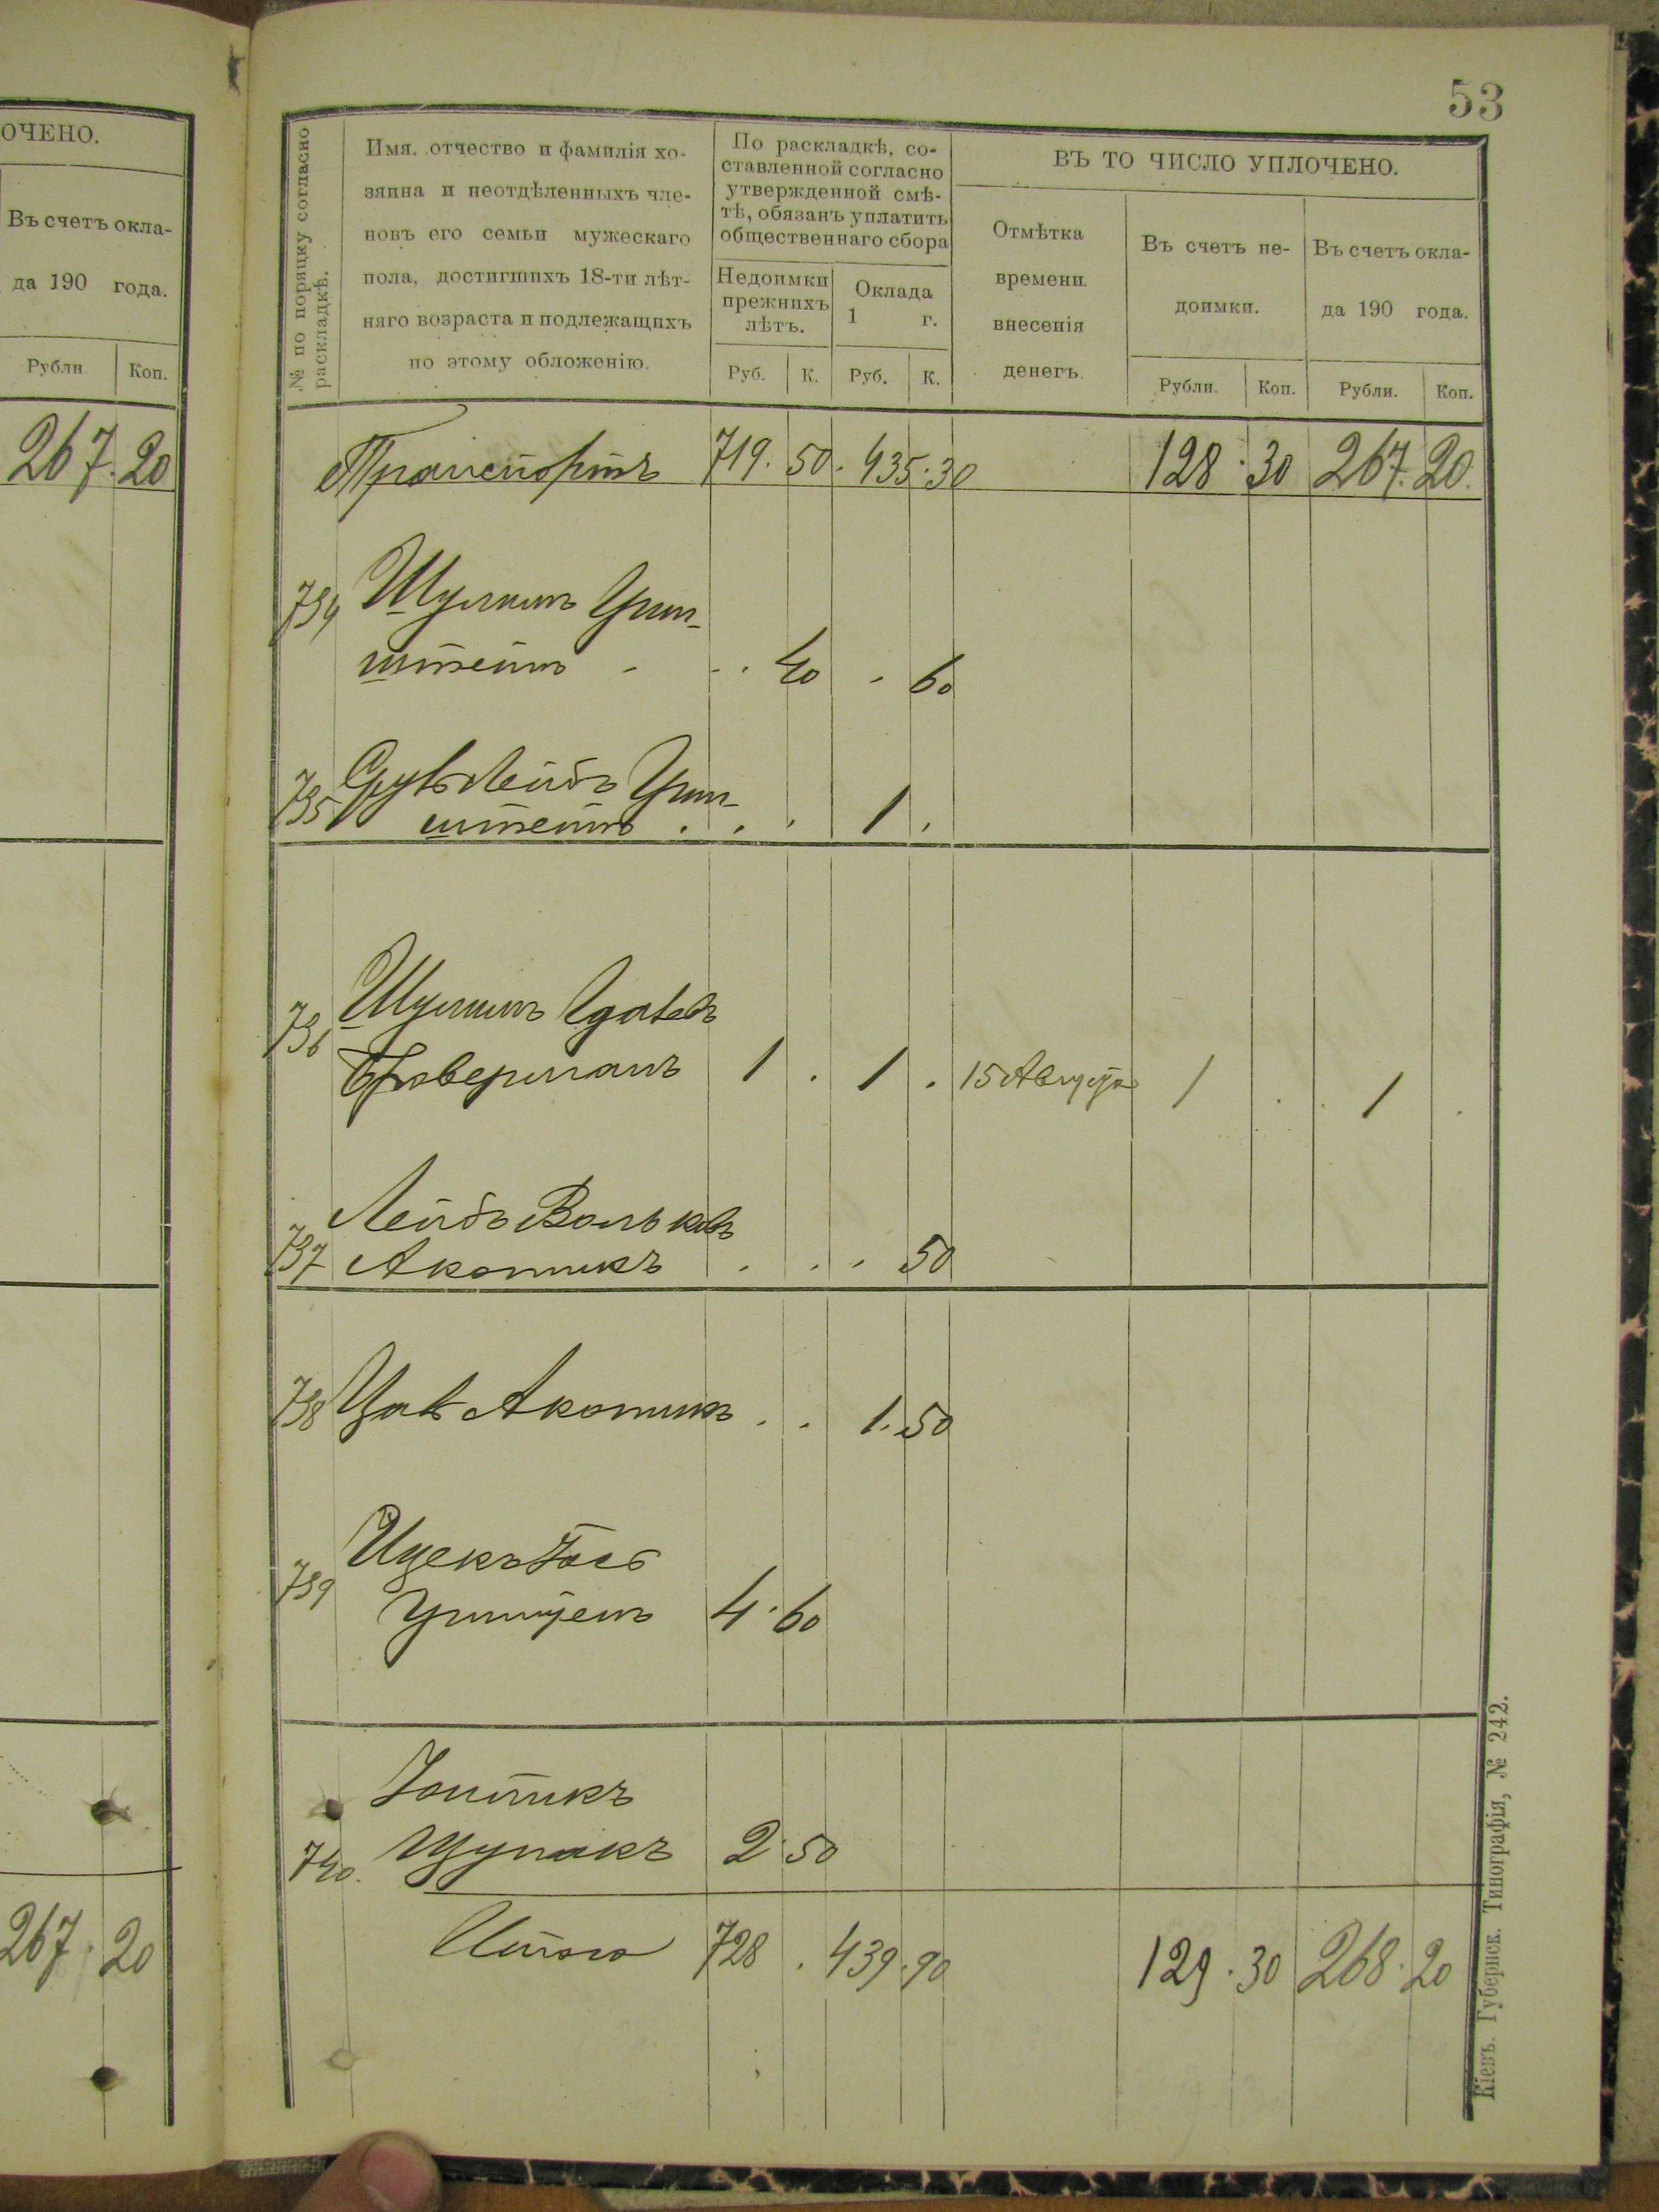 ОЧЕНО.
Въ счетъ окла-
да 190 года.
Рубли. Коп.
267. 20
267. 20
53
№ по порядку согласно
раскладкѣ.
Имя, отчество и фамилія хо-
зяина и неотдѣленныхъ чле-
новъ его семьи мужескаго
пола, достигшихъ 18-ти лѣт-
няго возраста и подлежащихъ
по этому обложенію.
По раскладкѣ, со-
ставленной согласно
утвержденной смѣ-
тѣ, обязанъ уплатить
общественнаго сбора
Недоимки
прежнихъ
лѣтъ.
Руб. К.
Оклада
1 г.
Руб. К.
ВЪ ТО ЧИСЛО УПЛОЧЕНО.
Отмѣтка
времени
внесенія
денегъ.
Въ счетъ не-
доимки.
Рубли. Коп.
Въ счетъ окла-
да 190 года.
Рубли. Коп.
Транспортъ 719. 50. 435. 30 128. 30 267. 20.
734 Шулимъ Грин-
штейнъ - . . 40 . 60
735 Сруль Лейбъ Грин-
штейнъ . . . 1 .
736 Шулимъ
1 . 1 . 15 Августа 1 . . 1 .
737 Лейбъ Вольковъ
Акопникъ . . . 50
738 Акопникъ . . 1. 50
739 Ицекъ Іось
4. 60
740. Щупакъ 2. 50
Итого 728 . 439. 90 129. 30 268. 20
Кіевъ. Губернск. Типографія, № 242.